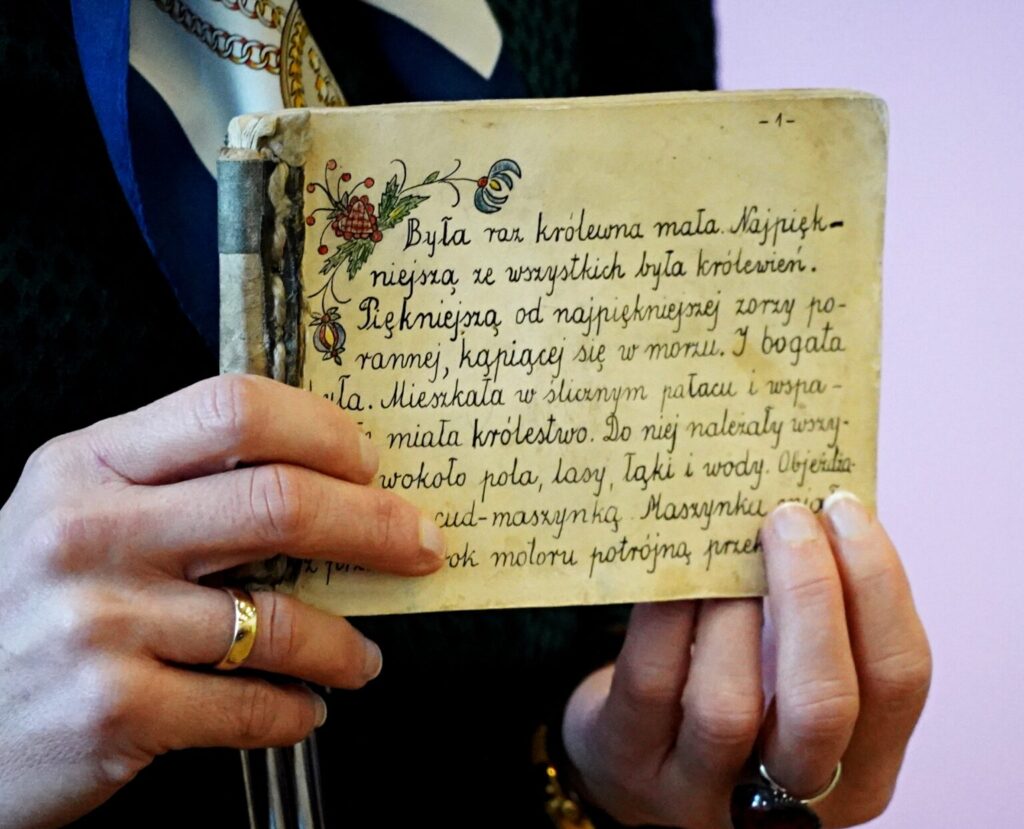 -1-
Była raz królewna mała. Najpięk-
niejszą ze wszystkich była królewien.
Piękniejszą od najpiękniejszej zorzy po-
rannej, kąpiącej się w morzu. I bogata
była. Mieszkała w ślicznym pałacu i wspa-
miała królestwo. Do niej należały wszy-
wokoło pola, lasy, łąki i wody. Objeżdża-
cud-maszynką. Maszynka
motoru potrójną